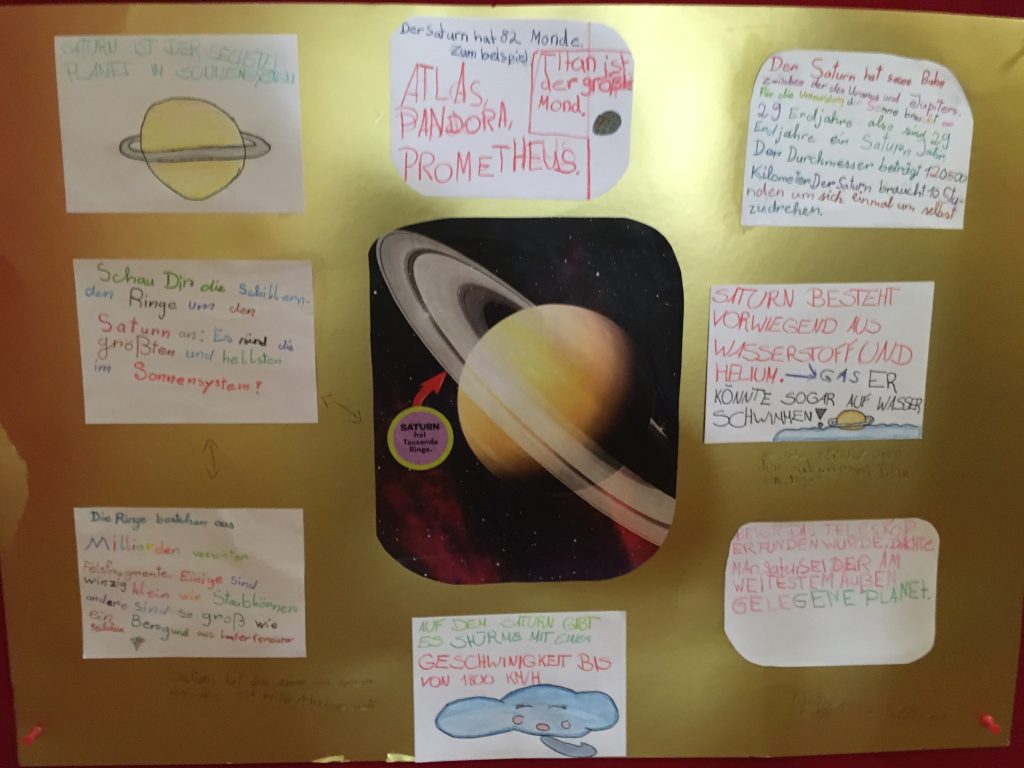 SATURN IST DER SECHSTE
PLANET IM SONNENSYSTEM
Der Saturn hat 82 Monde.
Zum beispiel
ATLAS,
PANDORA,
PROMETHEUS.
Titan ist
der größte
Mond.
Der Saturn hat seine Bahn
zwischen der des Uranus und Jupiters.
Für die Umrundung der Sonne braucht er
29 Erdjahre also sind 29
Erdjahre ein Saturn Jahr.
Der Durchmesser beträgt 120500
Kilometer. Der Saturn braucht 10 Stu-
nden um sich einmal um selbst
zudrehen.
Schau Dir die Schillern-
den Ringe um den
Saturn an: Es sind die
größten und hellsten
im Sonnensystem!
SATURN
hat
Tausende
Ringe.
SATURN BESTEHT
VORWIEGEND AUS
WASSERSTOFF UND
HELIUM. → GAS ER
KÖNNTE SOGAR AUF WASSER
SCHWIMMEN!
Die Ringe bestehen aus
Milliarden vereisten
Felsfragmenten. Einige sind
winzig klein wie Staubkörnen
andere sind so groß wie
ein Berg und aus
BEVOR DAS TELESKOP
ERFUNDEN WURDE, Dachte
MAN Satur SEI DER AM
WEITESTEM AUßEN
GELEGENE PLANET.
AUF DEM SATURN GIBT
ES STÜRME MIT EINER
GESCHWINIGKEIT BIS
VON 1800 KM/H